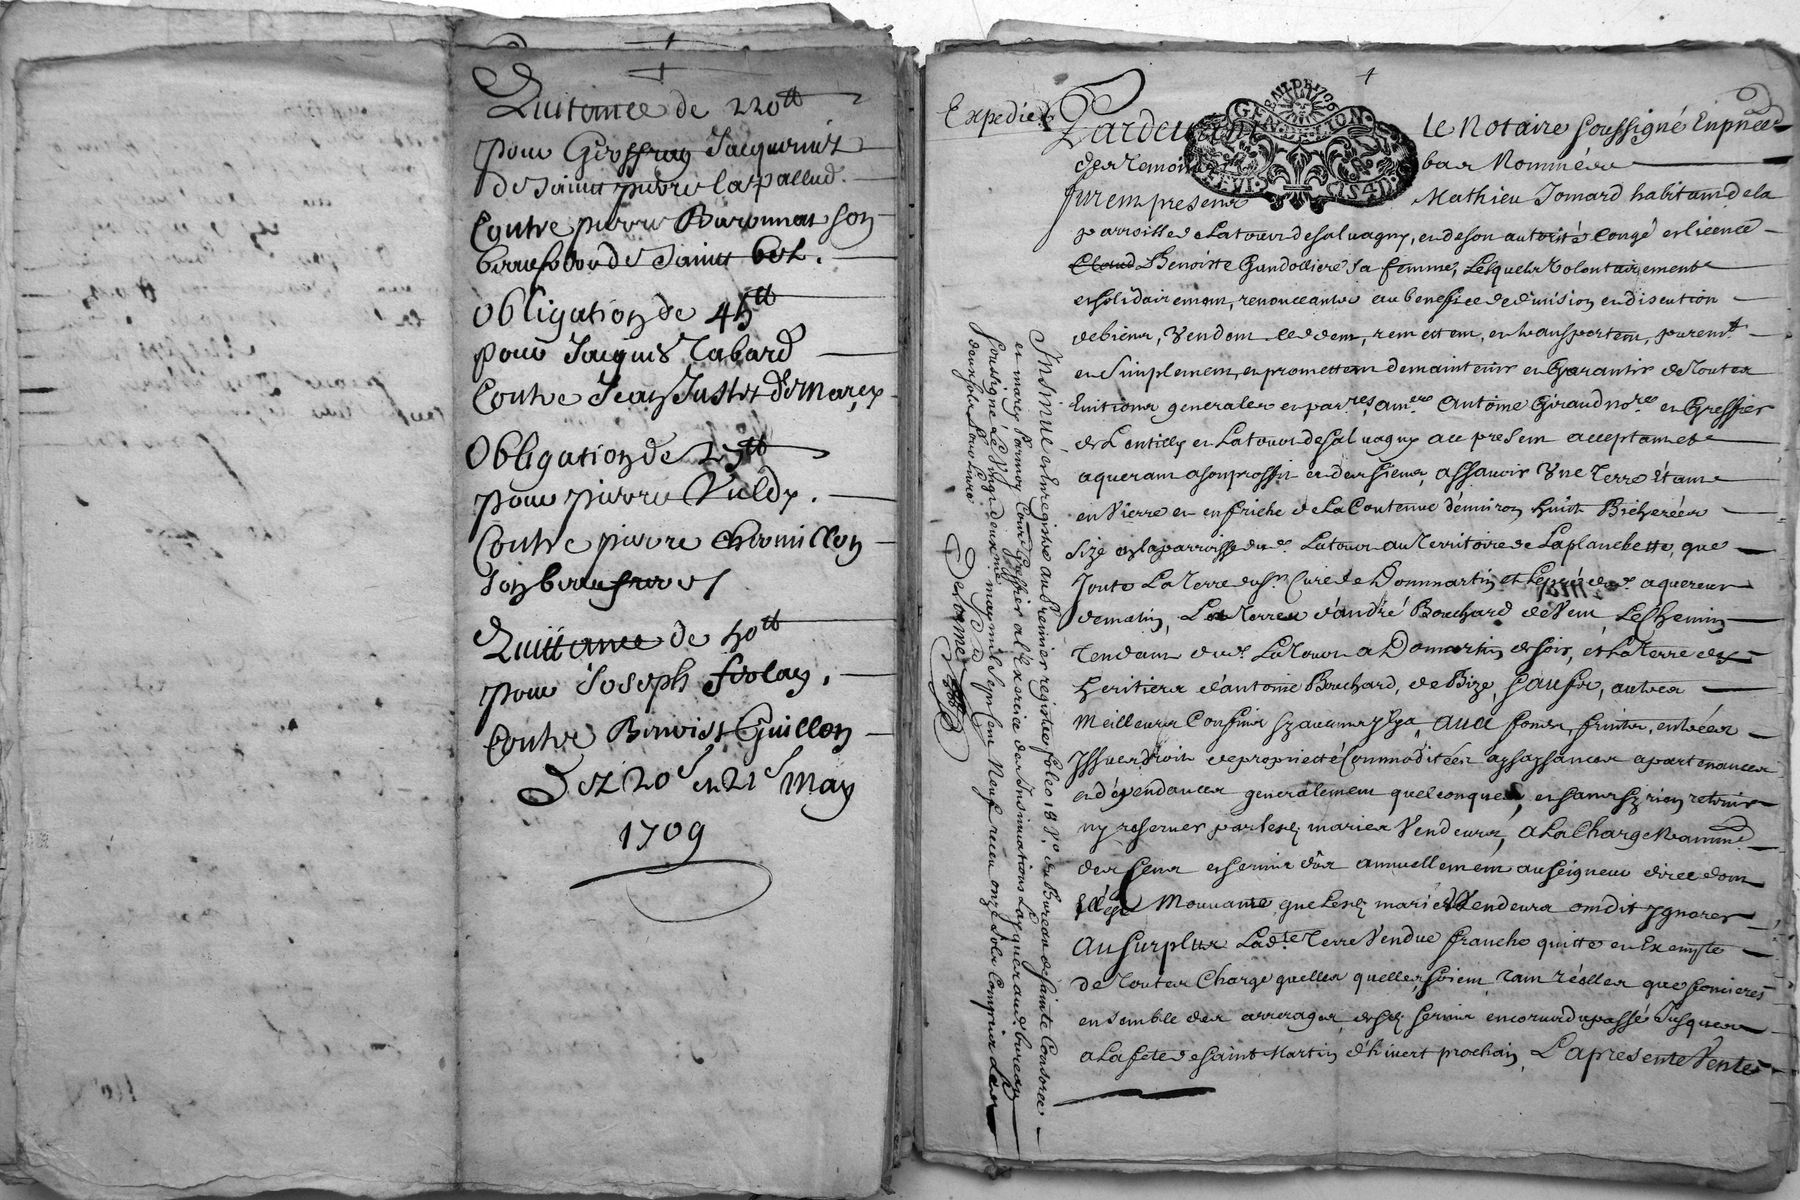 Quitance de 220tt
pour Geoffray Jacquemet
de Saint pierre la pallud.
Contre pierre Buronnat son
beaufrere de Saint bel.
Obligation de 45tt
pour Jacques Tabard
Contre Jean Juste de Marcy
Obligation de 27tt
pour pierre
Contre pierre
son beaufrere
Quittance de 50tt
pour Joseph
Contre Benoist Guillon
Des 20e et 21e May
1709
Expedié
Pardevant le Notaire soussigné En pnce
des Temoins bas Nommées
furent presens Mathieu Jomard habitant de la
parroisse de Latour de salvagny, et de son autorité congé et licence
Benoiste Gandolliere sa femme, Lesquels volontairement
et solidairement, renonceants au benefice de division et discution
de biens, Vendent ceddent, remettent, et transportent, puremt
et Simplement, et promettent de maintenir et Garantir de Toutes
Evitions generales et par Antoine Giraud nore et Greffier
de Lentilly et Latour de Salvagny au present acceptant et
aquerant a son proffit et des siens, assavoir Vne Terre Etant
en Vierre et en friche de La Contenue d'environ huit Bicherées
Size en la parroisse du d. Latour au Territoire de Laplanchette, que
Joute La Terre du sr Curé de Dommartin et du d. aquereur
de matin, La Terre d'andré Bouchard de Vent, Le Chemin
Tendant du d. Latour a Domartin de soir, et La Terre des
Heritiers d'antoine Bouchard, de Bize, Saufs, autres
Meilleurs Confins sy aucuns y a, avec fonds, fruits, entrées
Issues droits de proprieté Commoditées aysaysances apartenances
et dépendances generalement quelconques, et sans sy rien retenir
ny reserver par lesd mariés Vendeurs, a La Charge Neammt
des Sens et servis dûs annuellement au seigneur direc dont
Mouvante que Lesd mariés Vendeurs ont dit Ygnorer
Au surplus Lad.te Terre Vendue franche quitte et Exempte
de Toutes Charge quelles quelles soient, tant réelles que foncieres
ensemble des arrerages desd servis encourus du passé Jusques
a La fete de Saint Martin d'hivert prochain, La presente Vente
Insinué et Enregistré au premier registre folio 18 Vo. du Bureau de Sainte Consorce
et marcy Par moy Commis Greffier a l'Exercice des Insinuations Layques aud. bureau
soussigné Le Vingt deuxme. may mil sept cent Neuf receu onze sols compris Les
deux sols pour Livre
Delorme